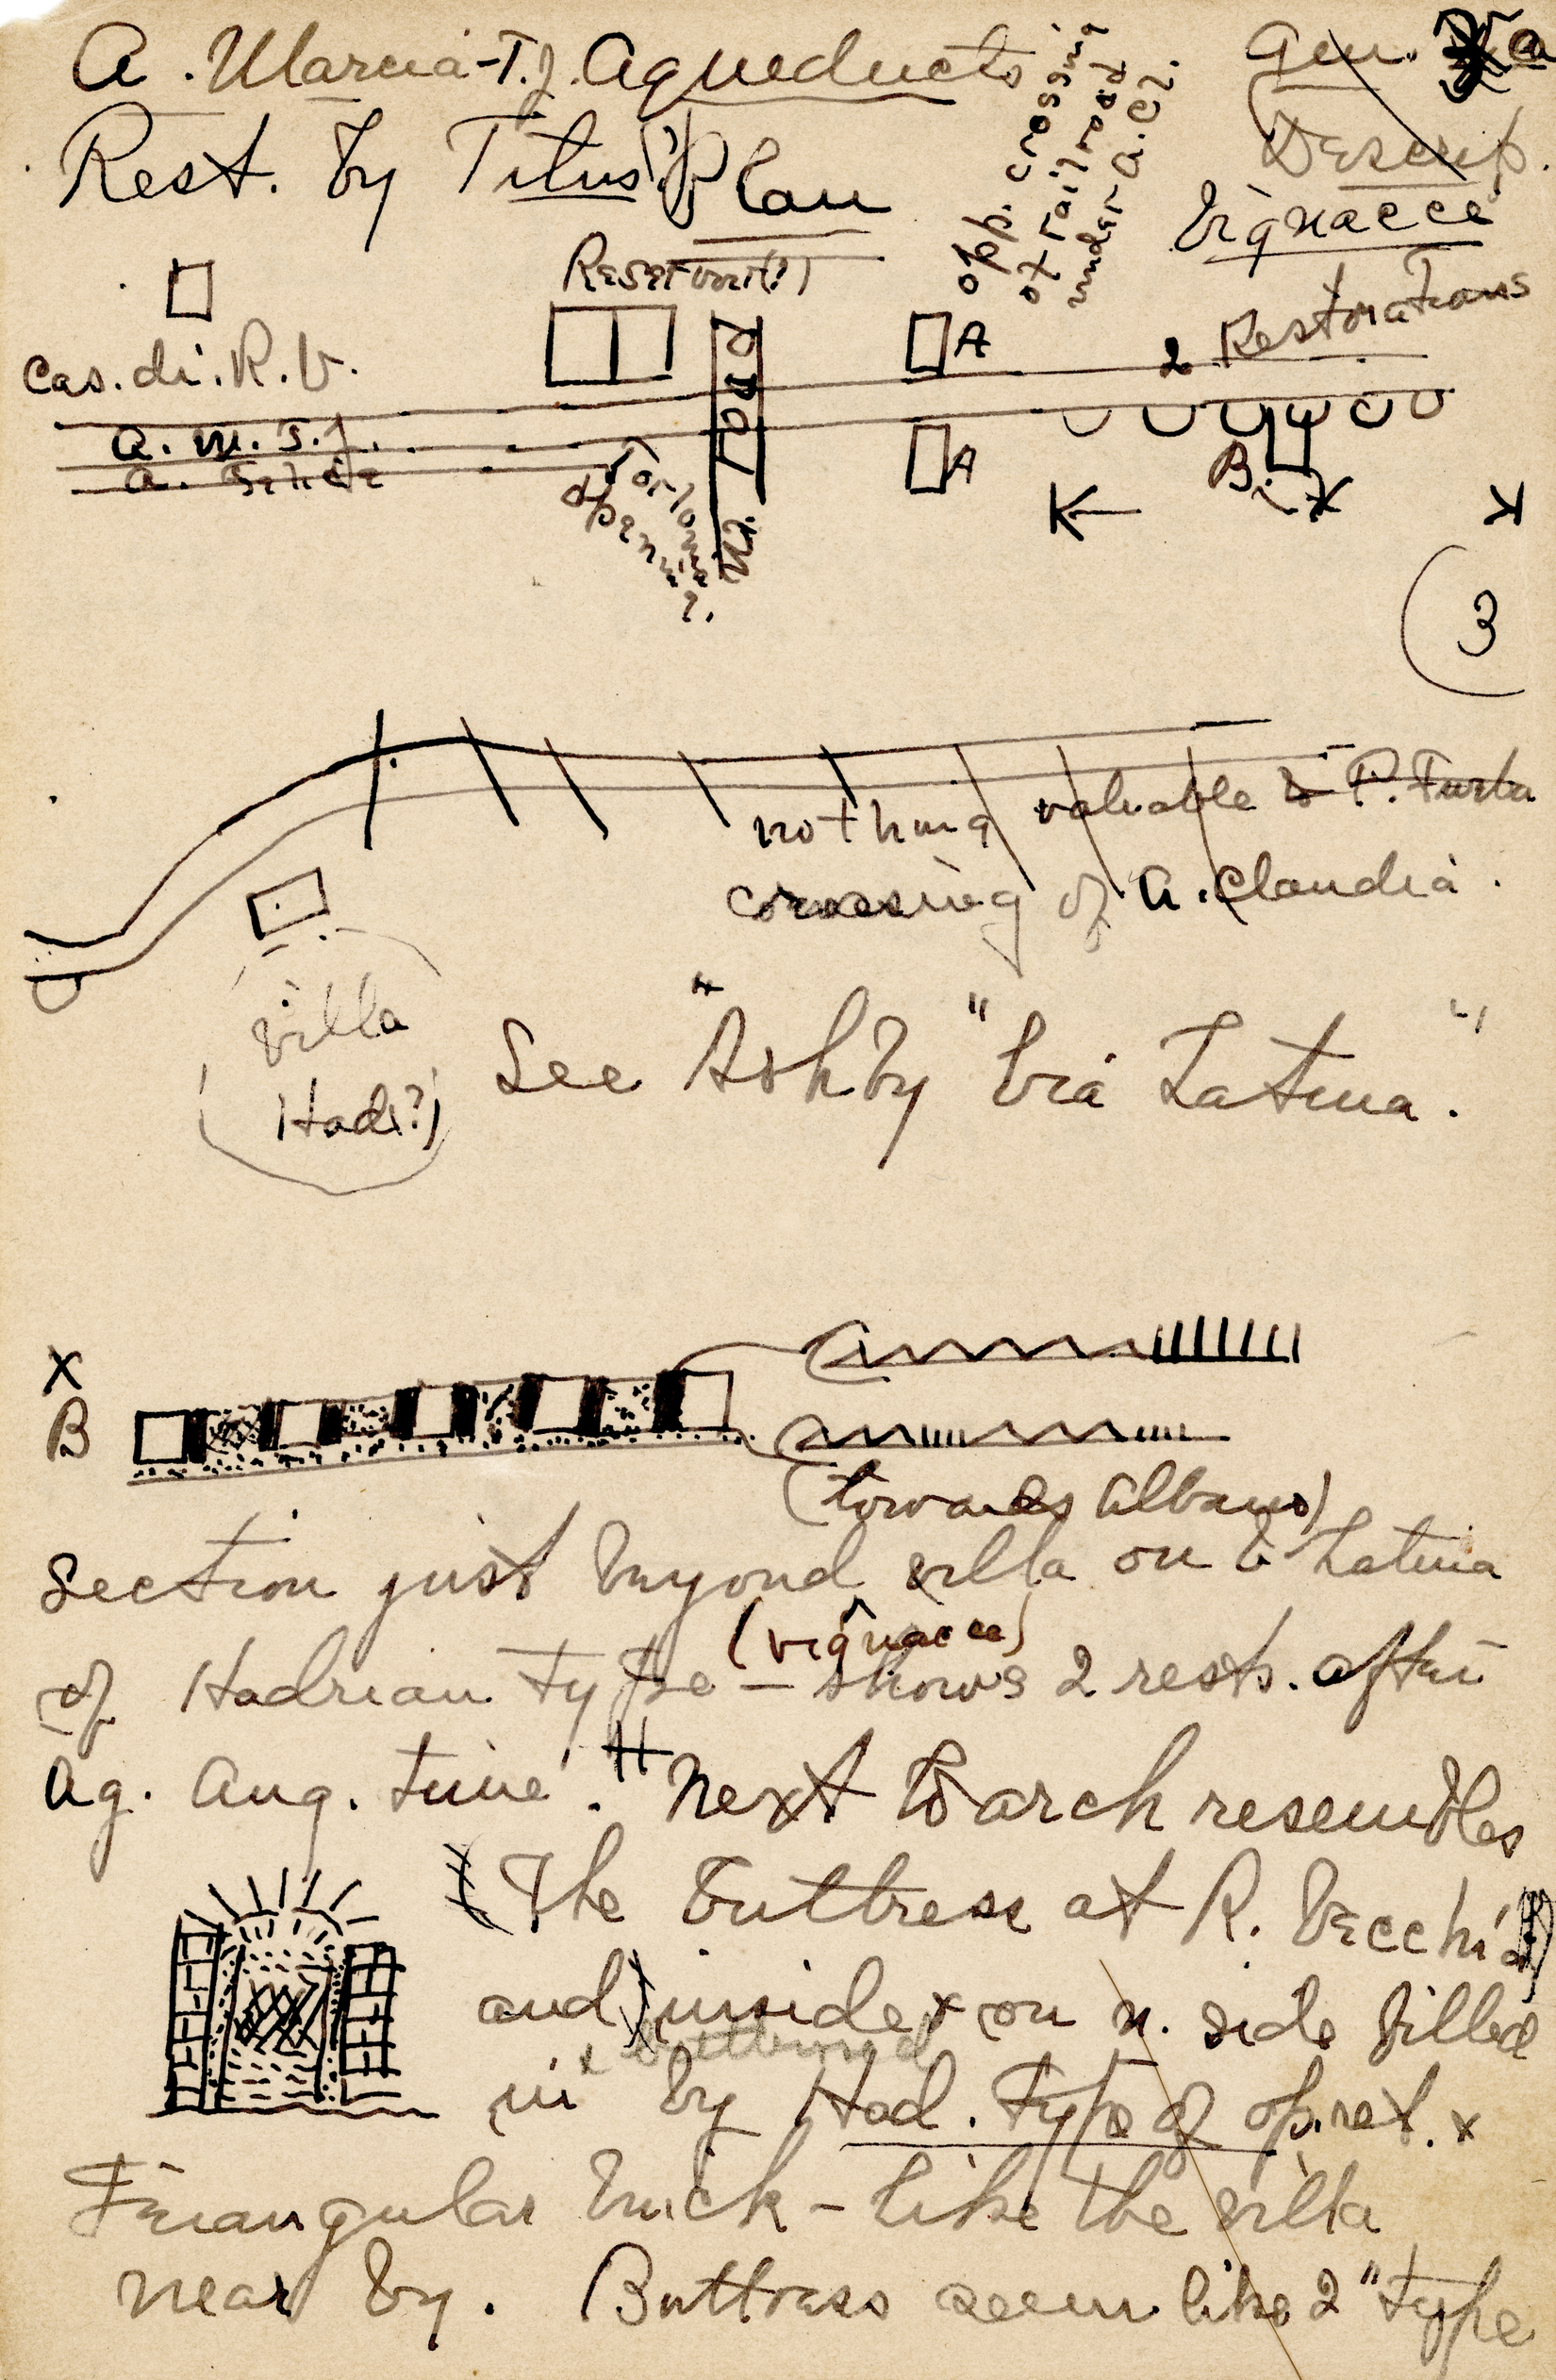 A. Marcia-T.J. Aqueducts
Gen.
Descrip.
Rest. by Titus(?) Plan
Vignacce
opp. crossing
of railroad
under A. Cl.
Reservoir(?)
2 Restorations
Cas. di. R. V.
A
A. M. T. J.
A. Felice
A
B. X
Torlonia
opening
?.
3
nothing valuable to P. Furba
crossing of A. Claudia.
Villa
Had?)
See "Ashby" "Via Latina."
X
B
(towards Albano)
Section just beyond villa on V Latina
(vignacce)
of Hadrian type – shows 2 rests. after
Ag. Aug. time. Next to arch resembles
The buttress at R. Vecchia)
and) inside x on n. side filled
x buttressed
in by Had. type of op. ret. x
Triangular brick – like the villa
near by. Buttress seem like 2" type